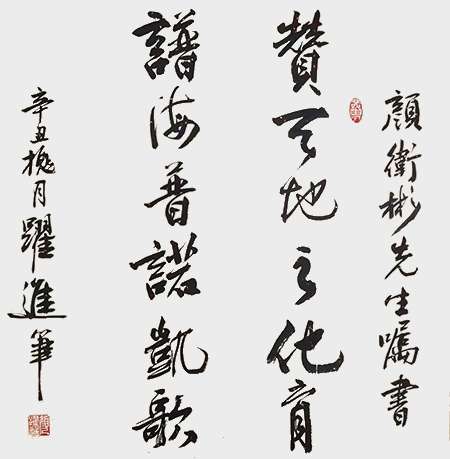 顏衛彬先生囑書
贊天地之化育
譜海普諾凱歌
辛丑槐月躍進筆